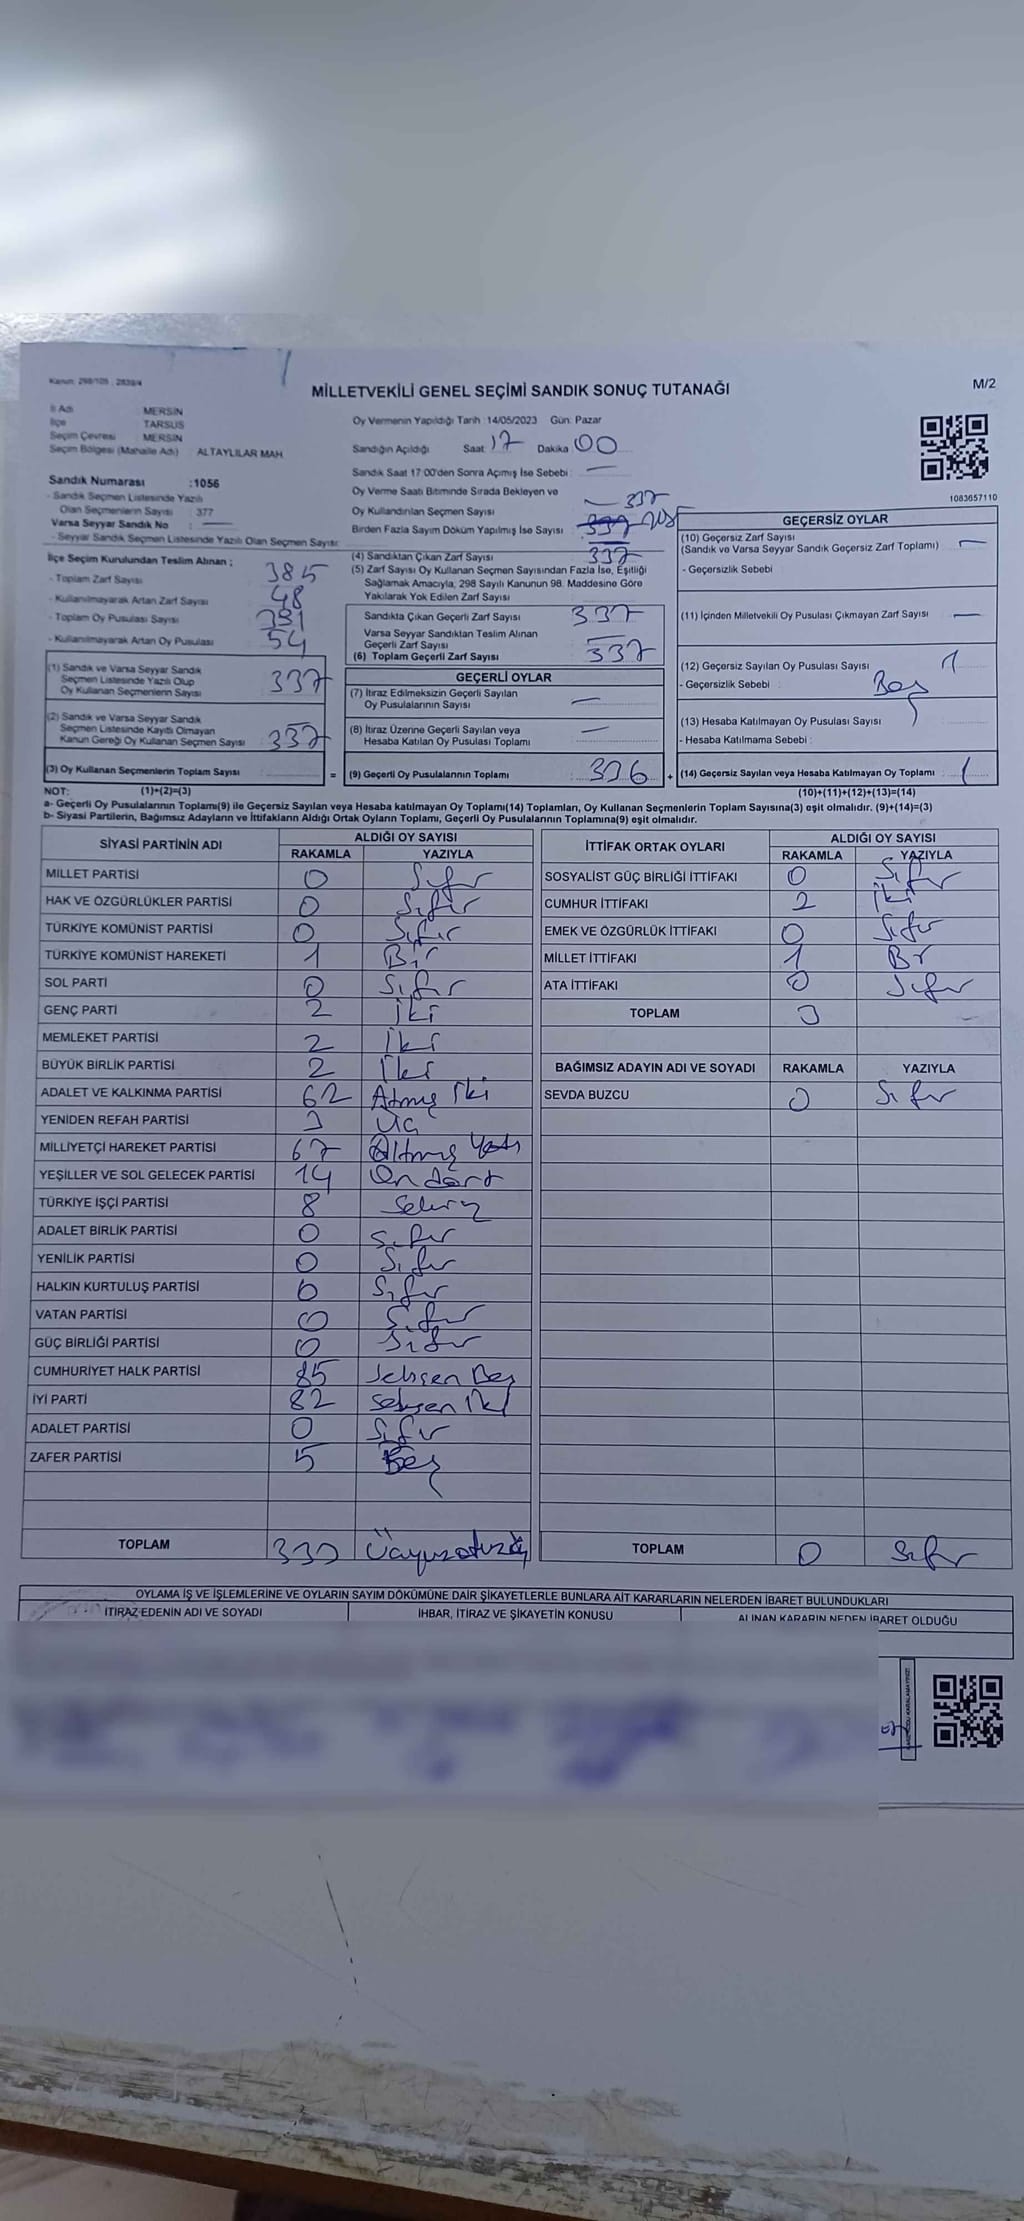 Kanun: 298/105 , 2839/4
MİLLETVEKİLİ GENEL SEÇİMİ SANDIK SONUÇ TUTANAĞI
M/2
İl Adı MERSİN
İlçe TARSUS
Seçim Çevresi MERSİN
Seçim Bölgesi (Mahalle Adı) ALTAYLILAR MAH
Sandık Numarası :1056
- Sandık Seçmen Listesinde Yazılı
Olan Seçmenlerin Sayısı : 377
Varsa Seyyar Sandık No :
- Seyyar Sandık Seçmen Listesinde Yazılı Olan Seçmen Sayısı:
İlçe Seçim Kurulundan Teslim Alınan ;
- Toplam Zarf Sayısı 385
- Kullanılmayarak Artan Zarf Sayısı 48
- Toplam Oy Pusulası Sayısı 391
- Kullanılmayarak Artan Oy Pusulası 54
(1) Sandık ve Varsa Seyyar Sandık
Seçmen Listesinde Yazılı Olup
Oy Kullanan Seçmenlerin Sayısı 337
(2) Sandık ve Varsa Seyyar Sandık
Seçmen Listesinde Kayıtlı Olmayan
Kanun Gereği Oy Kullanan Seçmen Sayısı 337
(3) Oy Kullanan Seçmenlerin Toplam Sayısı =
Oy Vermenin Yapıldığı Tarih : 14/05/2023 Gün: Pazar
Sandığın Açıldığı Saat 17 Dakika 00
Sandık Saat 17:00'den Sonra Açımış İse Sebebi : —
Oy Verme Saati Bitiminde Sırada Bekleyen ve
Oy Kullandırılan Seçmen Sayısı — 337
Birden Fazla Sayım Döküm Yapılmış İse Sayısı 337
(4) Sandıktan Çıkan Zarf Sayısı 337
(5) Zarf Sayısı Oy Kullanan Seçmen Sayısından Fazla İse, Eşitliği
Sağlamak Amacıyla, 298 Sayılı Kanunun 98. Maddesine Göre
Yakılarak Yok Edilen Zarf Sayısı
Sandıkta Çıkan Geçerli Zarf Sayısı 337
Varsa Seyyar Sandıktan Teslim Alınan
Geçerli Zarf Sayısı —
(6) Toplam Geçerli Zarf Sayısı 337
GEÇERLİ OYLAR
(7) İtiraz Edilmeksizin Geçerli Sayılan
Oy Pusulalarının Sayısı —
(8) İtiraz Üzerine Geçerli Sayılan veya
Hesaba Katılan Oy Pusulası Toplamı —
(9) Geçerli Oy Pusulalarının Toplamı 336 +
1083657110
GEÇERSİZ OYLAR
(10) Geçersiz Zarf Sayısı
(Sandık ve Varsa Seyyar Sandık Geçersiz Zarf Toplamı) —
- Geçersizlik Sebebi
(11) İçinden Milletvekili Oy Pusulası Çıkmayan Zarf Sayısı —
(12) Geçersiz Sayılan Oy Pusulası Sayısı 1
- Geçersizlik Sebebi : Boş
(13) Hesaba Katılmayan Oy Pusulası Sayısı
- Hesaba Katılmama Sebebi :
(14) Geçersiz Sayılan veya Hesaba Katılmayan Oy Toplamı : 1
NOT: (1)+(2)=(3) (10)+(11)+(12)+(13)=(14)
a- Geçerli Oy Pusulalarının Toplamı(9) ile Geçersiz Sayılan veya Hesaba katılmayan Oy Toplamı(14) Toplamları, Oy Kullanan Seçmenlerin Toplam Sayısına(3) eşit olmalıdır. (9)+(14)=(3)
b- Siyasi Partilerin, Bağımsız Adayların ve İttifakların Aldığı Ortak Oyların Toplamı, Geçerli Oy Pusulalarının Toplamına(9) eşit olmalıdır.
SİYASİ PARTİNİN ADI ALDIĞI OY SAYISI
RAKAMLA YAZIYLA
MİLLET PARTİSİ 0 Sıfır
HAK VE ÖZGÜRLÜKLER PARTİSİ 0 Sıfır
TÜRKİYE KOMÜNİST PARTİSİ 0 Sıfır
TÜRKİYE KOMÜNİST HAREKETİ 1 Bir
SOL PARTİ 0 Sıfır
GENÇ PARTİ 2 İki
MEMLEKET PARTİSİ 2 İki
BÜYÜK BİRLİK PARTİSİ 2 İki
ADALET VE KALKINMA PARTİSİ 62 Atmış İki
YENİDEN REFAH PARTİSİ 3 Üç
MİLLİYETÇİ HAREKET PARTİSİ 67 Altmış Yedi
YEŞİLLER VE SOL GELECEK PARTİSİ 14 On dört
TÜRKİYE İŞÇİ PARTİSİ 8 Sekiz
ADALET BİRLİK PARTİSİ 0 Sıfır
YENİLİK PARTİSİ 0 Sıfır
HALKIN KURTULUŞ PARTİSİ 0 Sıfır
VATAN PARTİSİ 0 Sıfır
GÜÇ BİRLİĞİ PARTİSİ 0 Sıfır
CUMHURİYET HALK PARTİSİ 85 Seksen Beş
İYİ PARTİ 82 Seksen İki
ADALET PARTİSİ 0 Sıfır
ZAFER PARTİSİ 5 Beş
TOPLAM 333 Üçyüzotuzüç
İTTİFAK ORTAK OYLARI ALDIĞI OY SAYISI
RAKAMLA YAZIYLA
SOSYALİST GÜÇ BİRLİĞİ İTTİFAKI 0 Sıfır
CUMHUR İTTİFAKI 2 İki
EMEK VE ÖZGÜRLÜK İTTİFAKI 0 Sıfır
MİLLET İTTİFAKI 1 Bir
ATA İTTİFAKI 0 Sıfır
TOPLAM 3
BAĞIMSIZ ADAYIN ADI VE SOYADI RAKAMLA YAZIYLA
SEVDA BUZCU 0 Sıfır
TOPLAM 0 Sıfır
OYLAMA İŞ VE İŞLEMLERİNE VE OYLARIN SAYIM DÖKÜMÜNE DAİR ŞİKAYETLERLE BUNLARA AİT KARARLARIN NELERDEN İBARET BULUNDUKLARI
İTİRAZ EDENİN ADI VE SOYADI İHBAR, İTİRAZ VE ŞİKAYETİN KONUSU ALINAN KARARIN NEDEN İBARET OLDUĞU